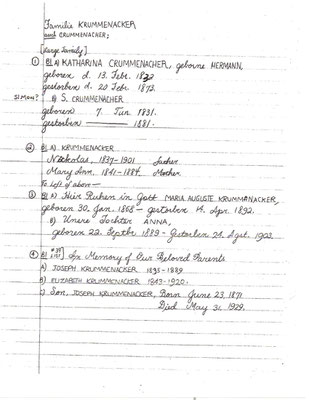 Familie KRUMMENACKER
and CRUMMENACKER;
[Large Family]
① A) KATHARINA CRUMMENACHER, geborne HERMANN,
geboren d. 13. Febr. 1822
gestorben d. 20 Febr. 1873.
SIMON? B) S. CRUMMENACHER
geboren 7. Jun. 1831.
gestorben ——— 1881.
② A). KRUMMENACKER
Nickolas, 1837-1901 Father
Mary Ann, 1841-1884. Mother
To left of above—
③ A) Hier Ruhen in Gott MARIA AUGUSTE KRUMMANACKER,
geboren 30. Jan. 1868 - gestorben 14. Apr. 1892.
B) Unsere Tochter ANNA,
geboren 22. Septbr. 1889 - Gestorben 21. Sept. 1903.
④ In Memory of Our Beloved Parents
A) JOSEPH KRUMMENACKER 1835-1889
B) ELIZABETH KRUMMENACKER 1843-1920.
C) Son, JOSEPH KRUMMENACKER, Born June 23, 1871
Died May 31, 1929.